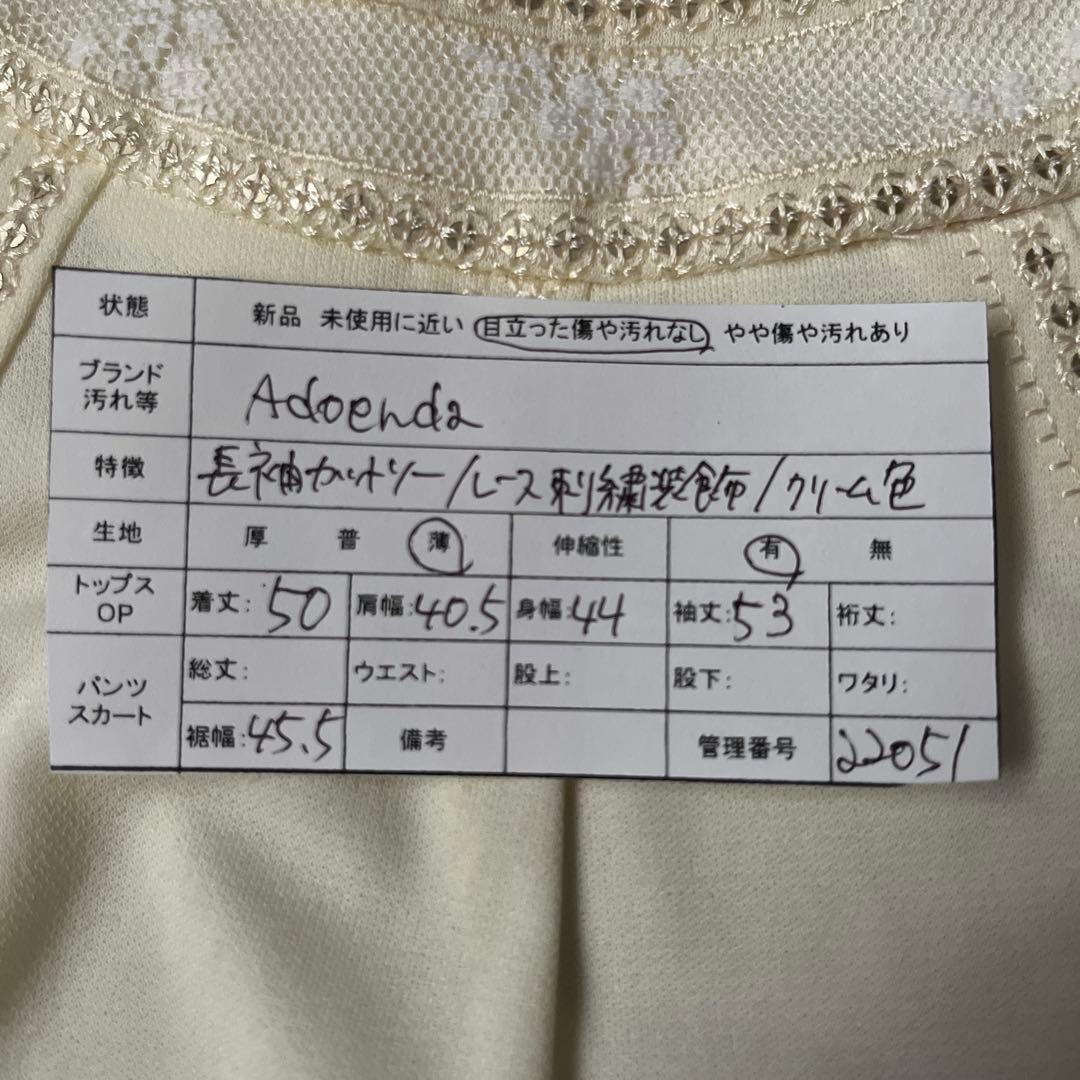 状態 新品 未使用に近い 目立った傷や汚れなし やや傷や汚れあり
ブランド
汚れ等 Adoenda
特徴 長袖カットソー/レース刺繍装飾/クリーム色
生地 厚 普 薄 伸縮性 有 無
トップス
OP 着丈:50 肩幅:40.5 身幅:44 袖丈:53 裄丈:
パンツ
スカート 総丈: ウエスト: 股上: 股下: ワタリ:
裾幅:45.5 備考 管理番号 22051